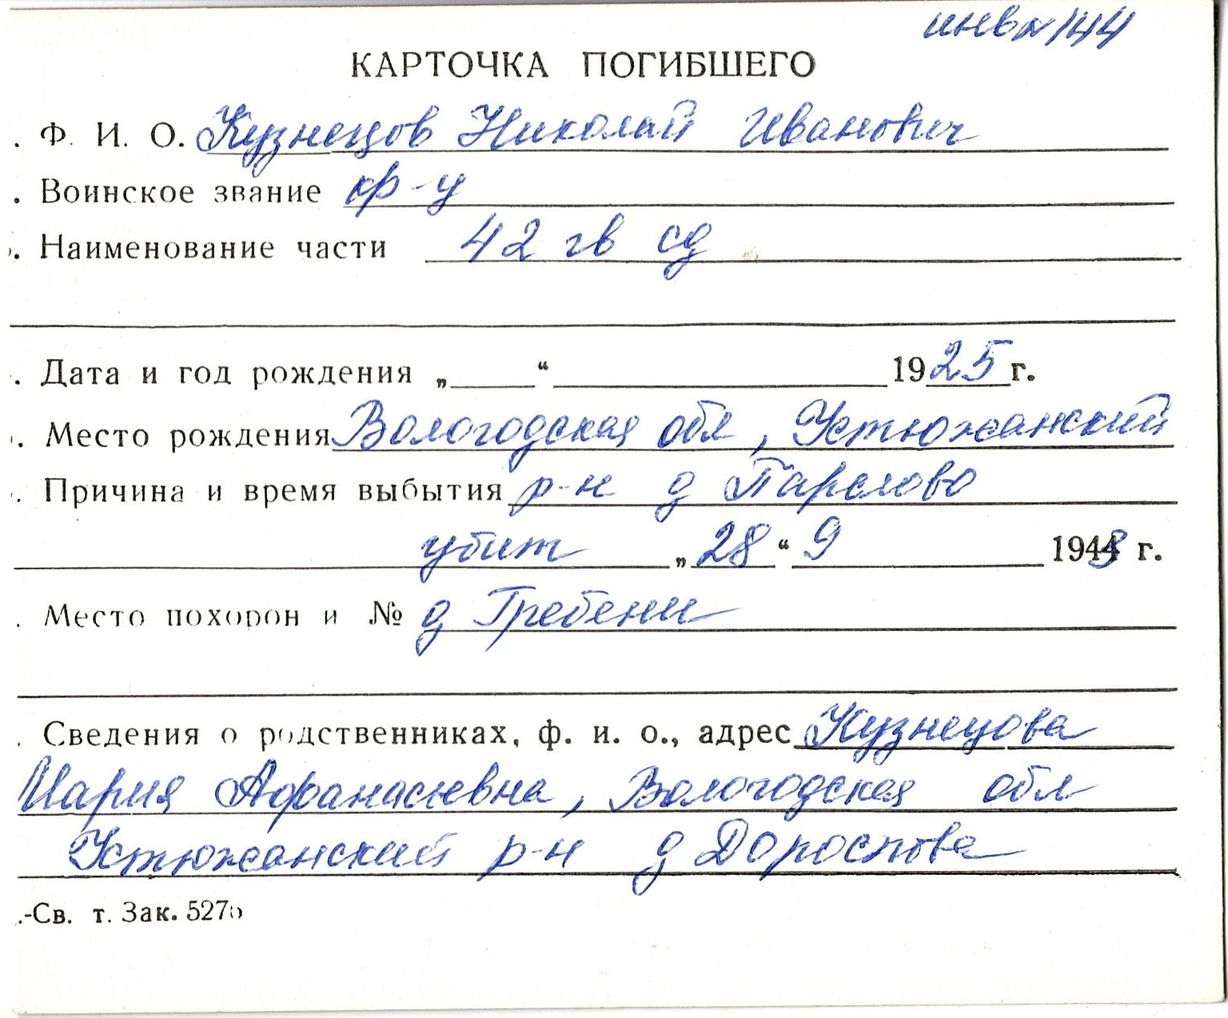 инв № 144
КАРТОЧКА ПОГИБШЕГО
. Ф. И. О. Кузнецов Николай Иванович
. Воинское звание кр-ц
. Наименование части 42 гв сд
. Дата и год рождения „ “ 1925 г.
. Место рождения Вологодская обл, Устюжанский
. Причина и время выбытия р-н д Парслово
убит „28“ 9 1943 г.
. Место похорон и № д Гребени
. Сведения о родственниках, ф. и. о., адрес Кузнецова
Мария Афанасиевна, Вологодская обл
Устюжанский р-н д
.-Св. т. Зак. 527